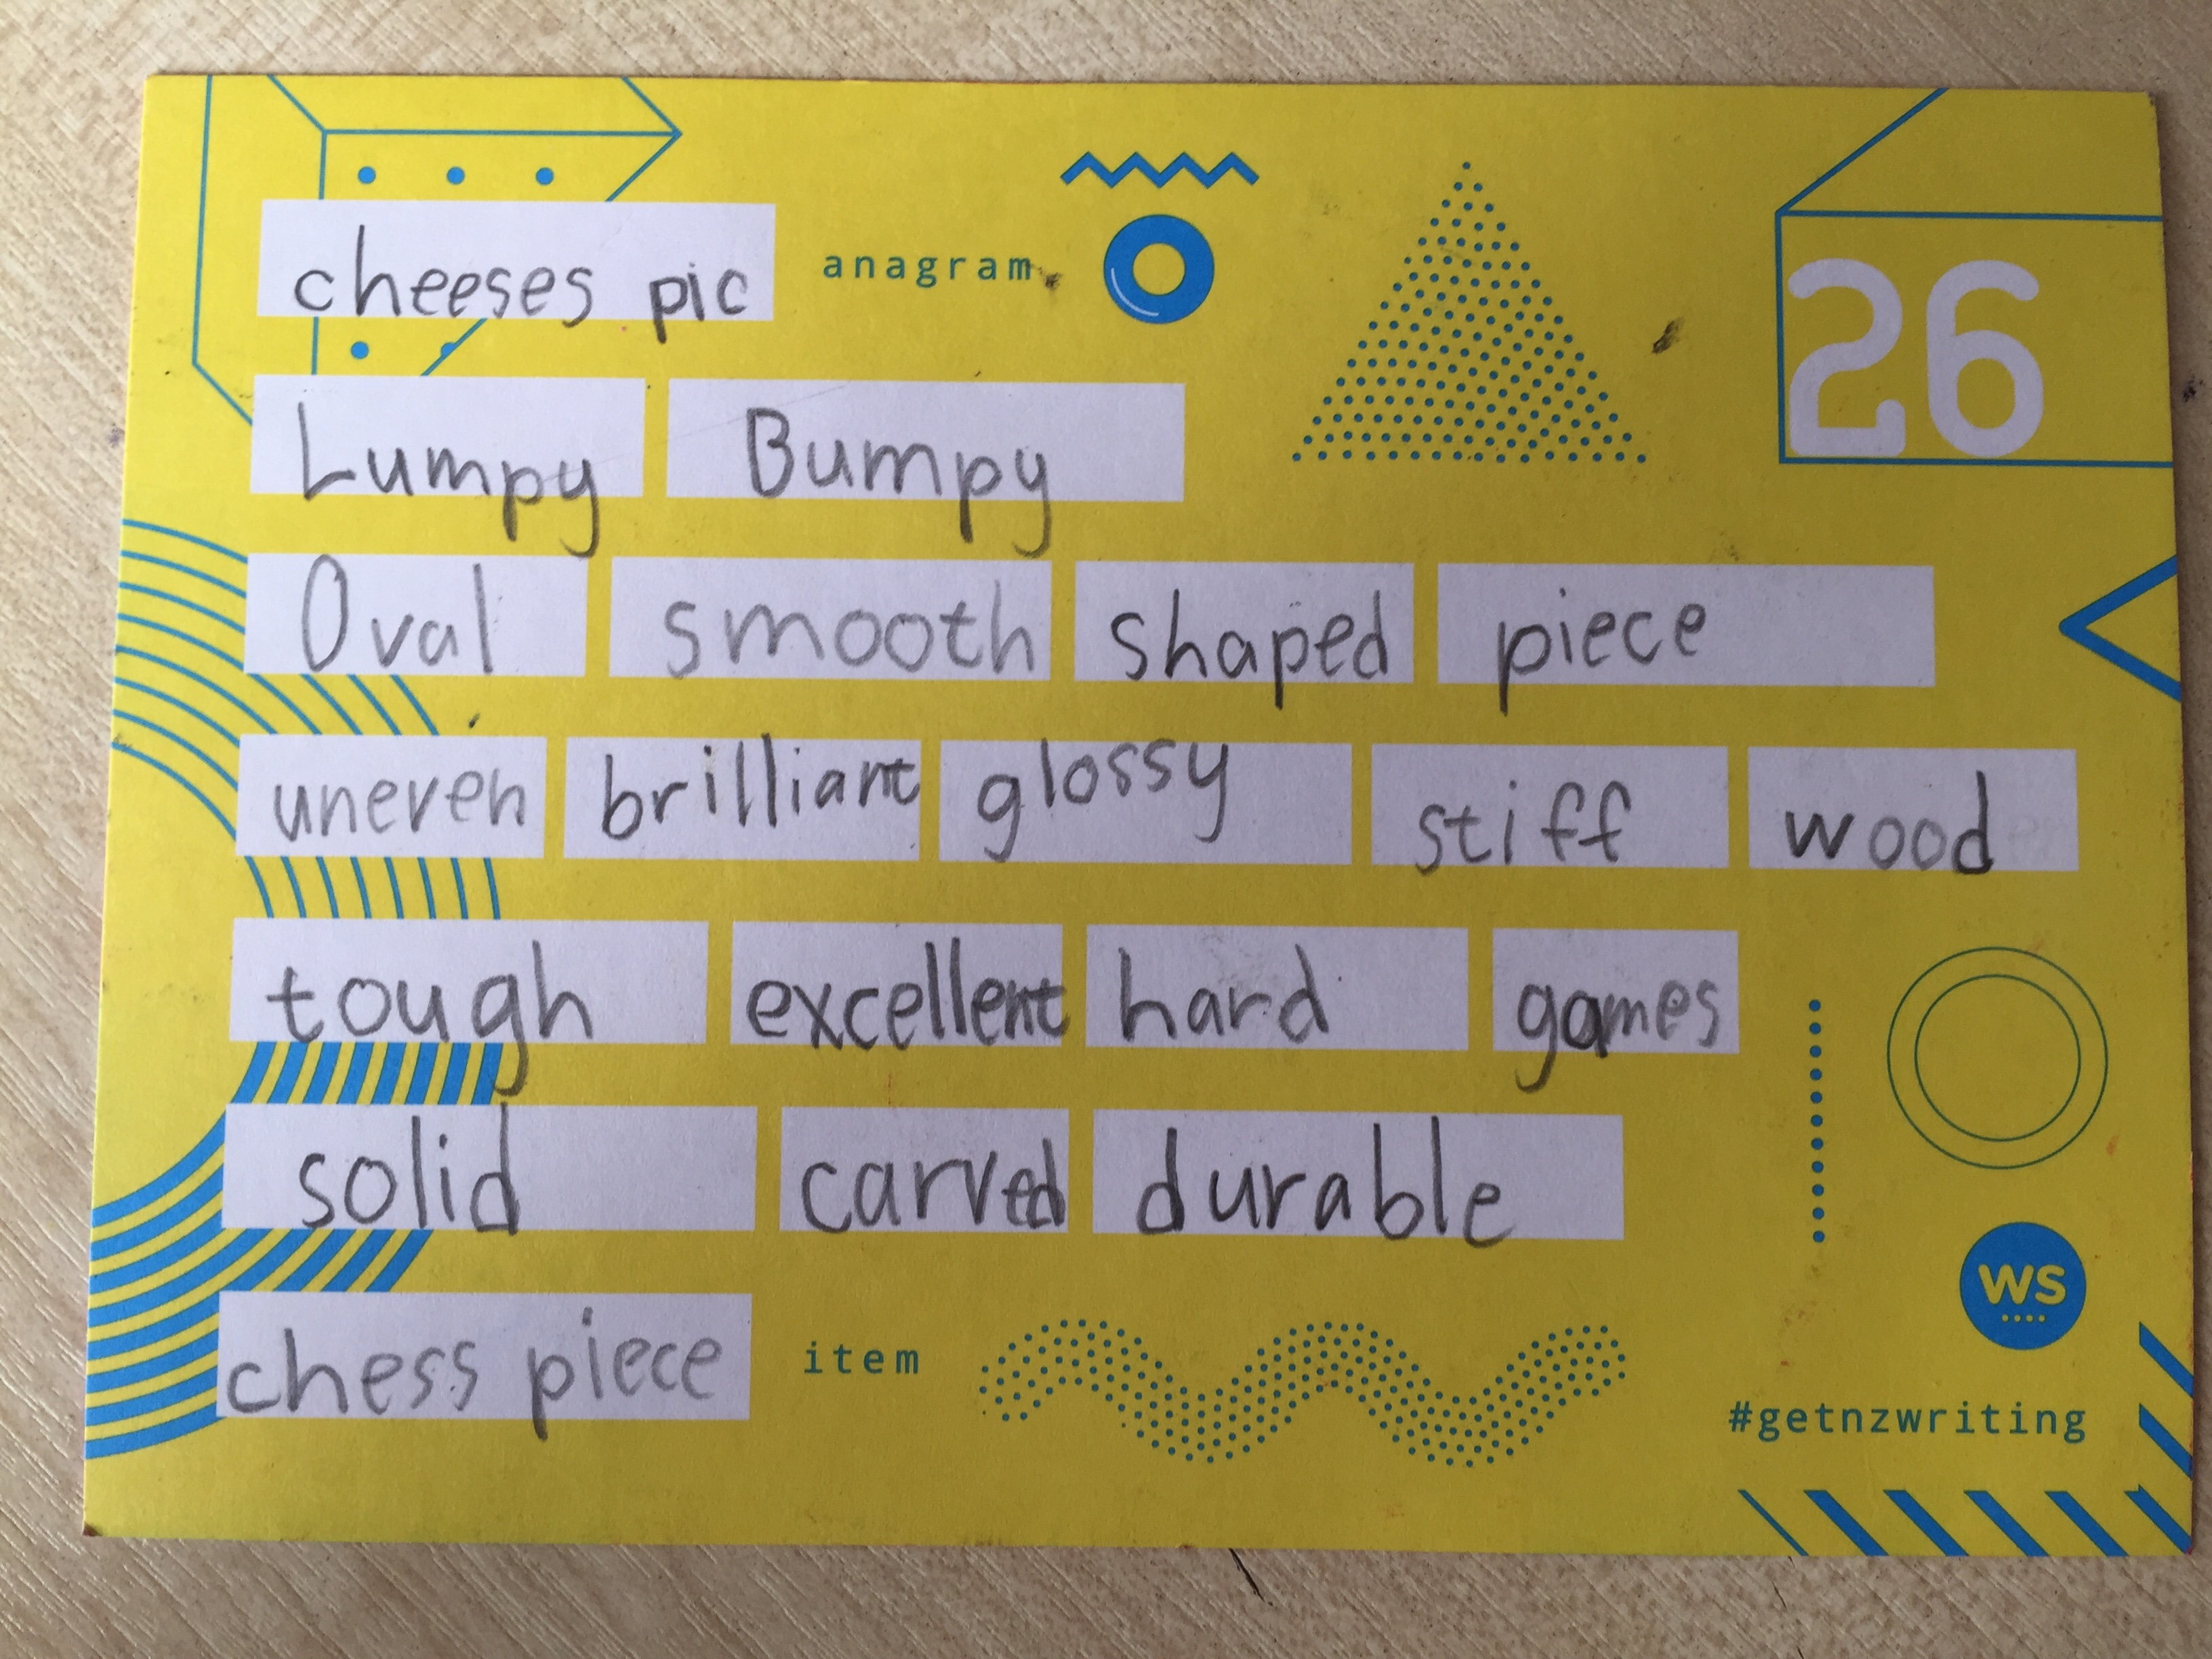 cheeses pic anagram
26
Lumpy Bumpy
Oval smooth shaped piece
uneven brilliant glossy stiff wood
tough excellent hard games
solid carved durable
WS
chess piece item
#getnzwriting